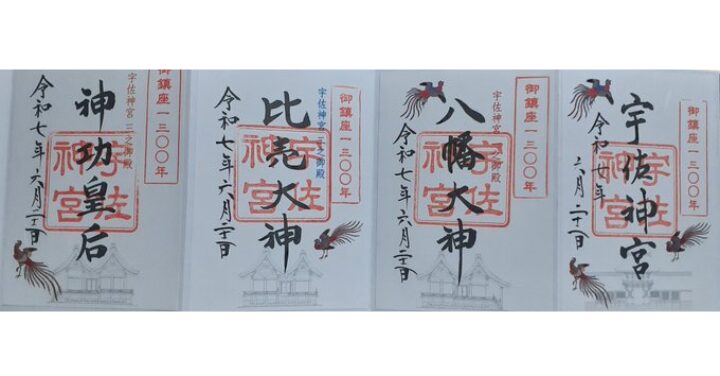 御鎮座一三〇〇年
宇佐神宮
宇佐
神宮
令和七年
六月二十一日
御鎮座一三〇〇年
宇佐神宮 一之御殿
八幡大神
宇佐
神宮
令和七年六月
御鎮座一三〇〇年
宇佐神宮 二之御殿
比売大神
宇佐
神宮
令和七年六月
御鎮座一三〇〇年
宇佐神宮 三之御殿
神功皇后
宇佐
神宮
令和七年六月